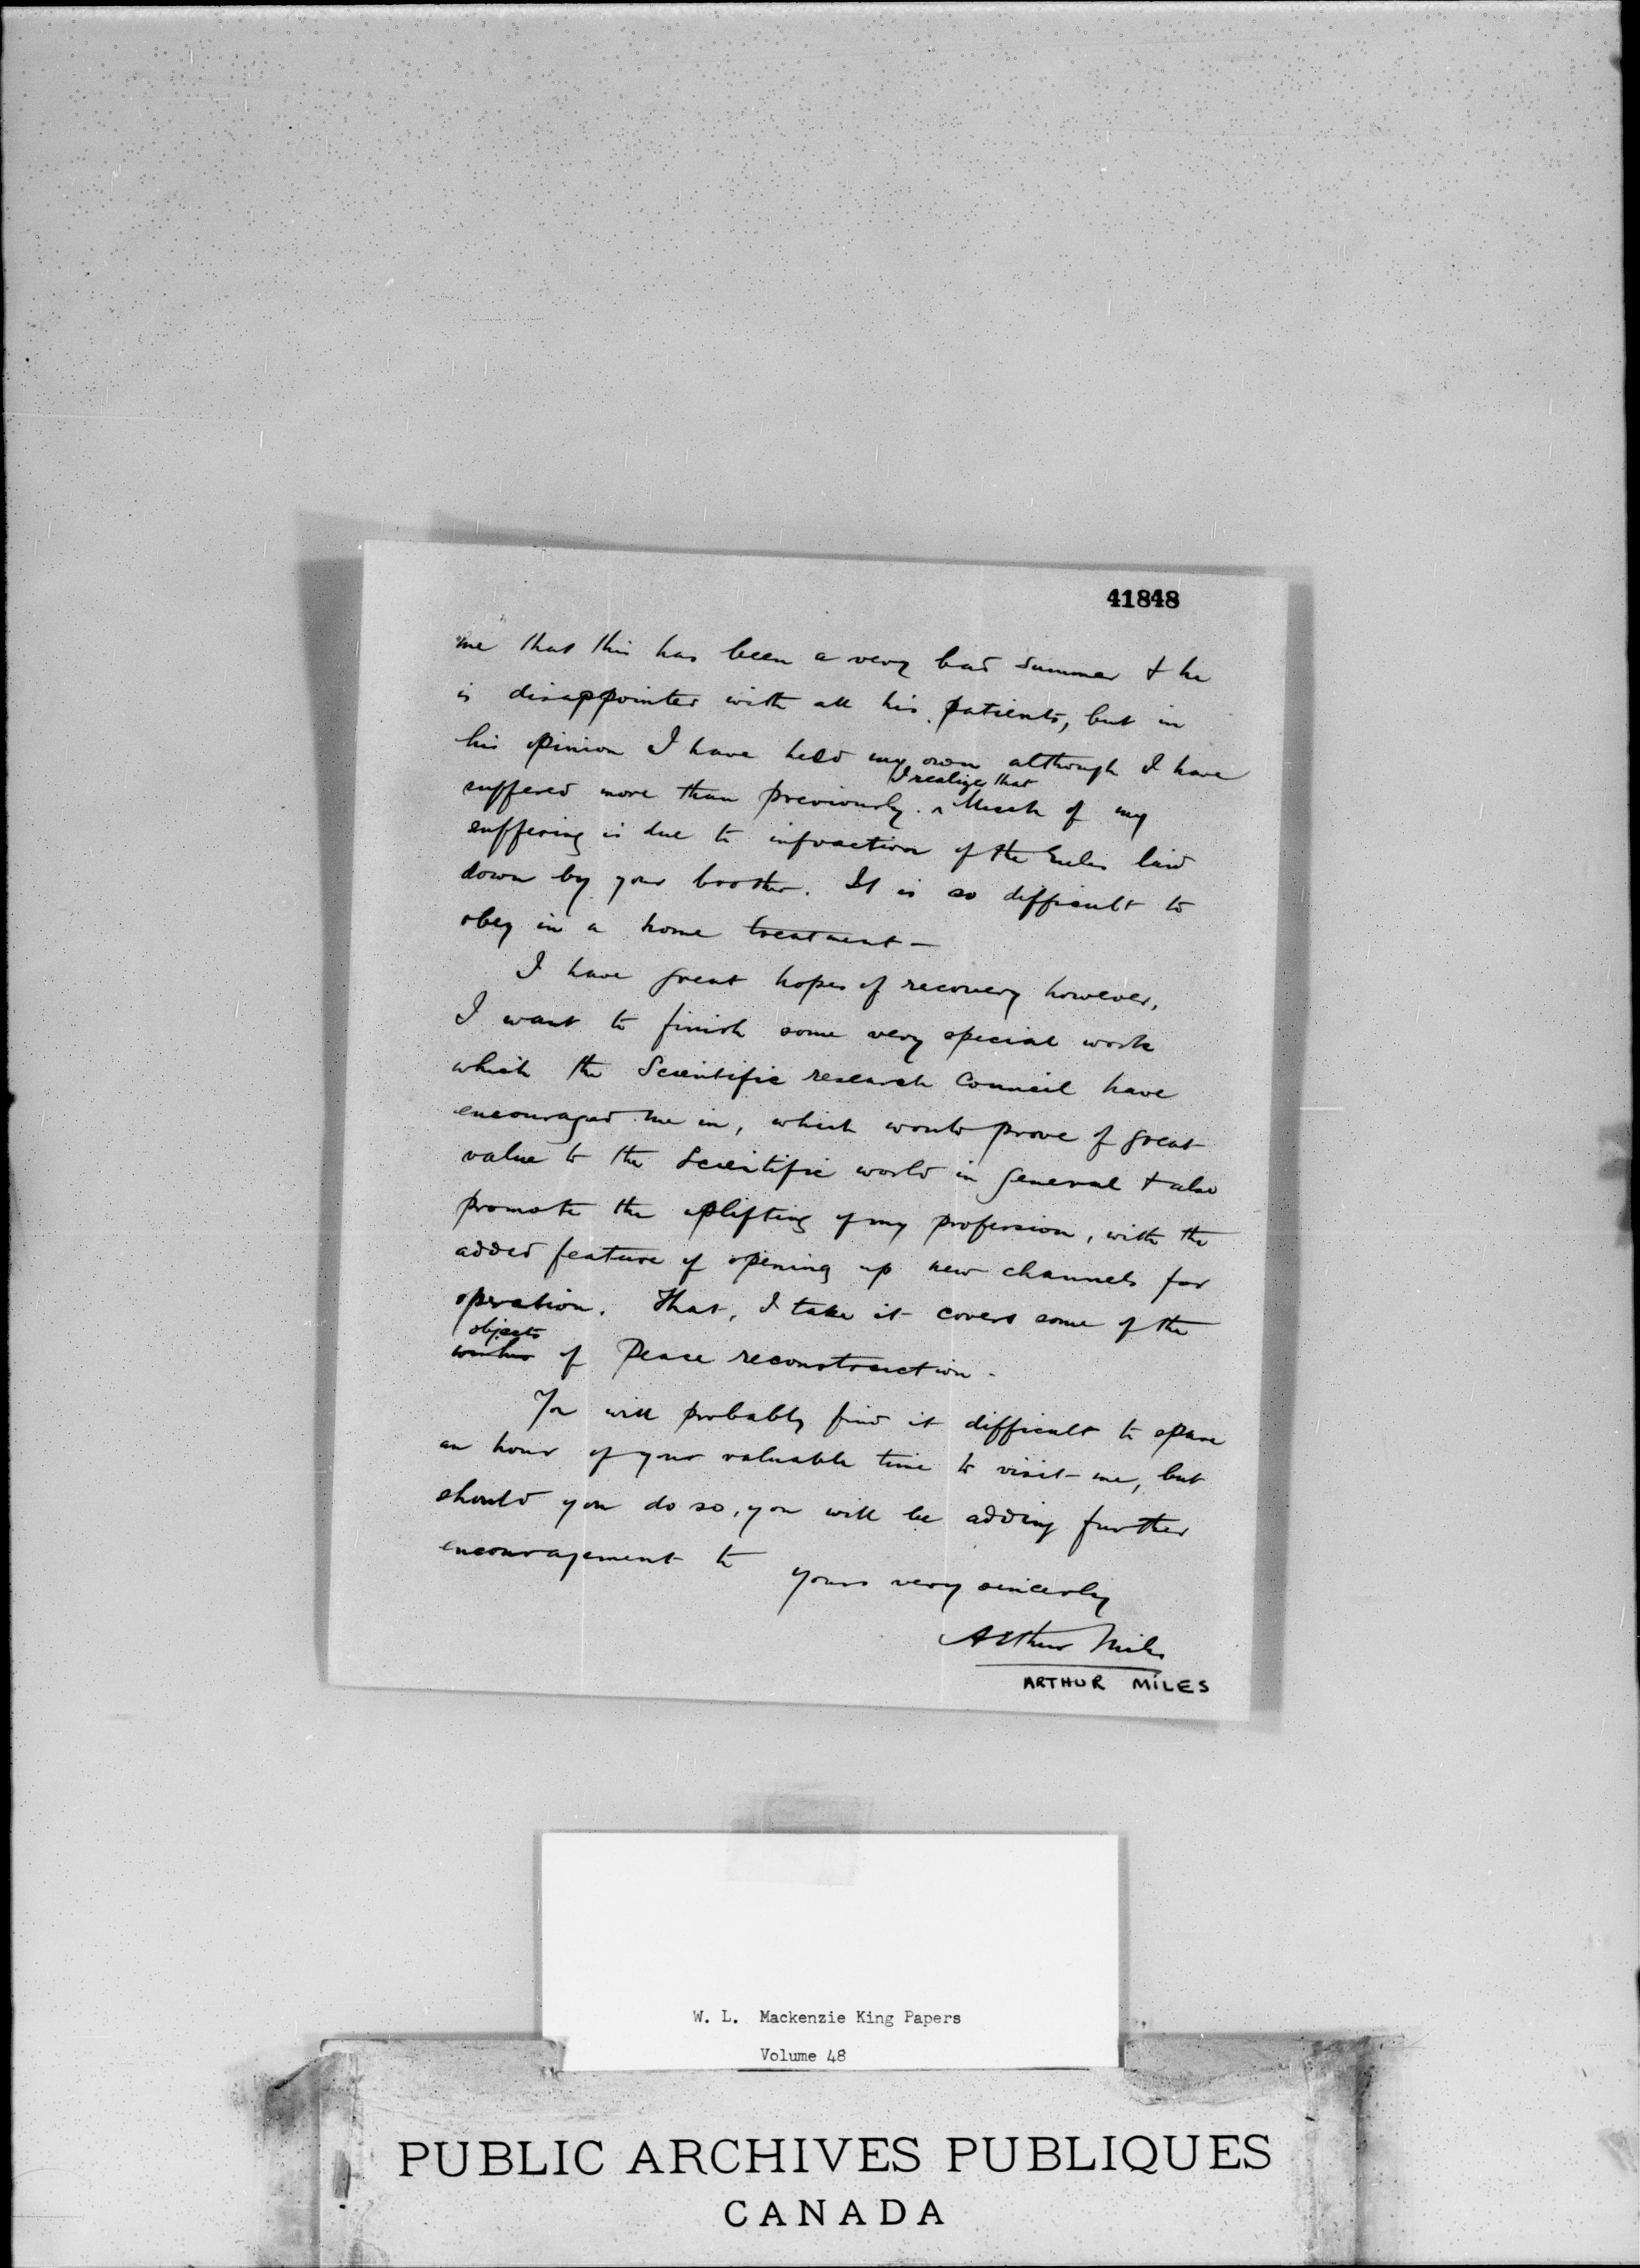 41848
me that this has been a very bad summer & he
is disappointed with all his patients, but in
his opinion I have held my own although I have
I realize that
suffered more than previously. ^ Much of my
suffering is due to infraction of the rules laid
down by your brother. It is so difficult to
obey in a home treatment —
I have great hopes of recovery however,
I want to finish some very special work
which the Scientific research Council have
encouraged me in, which would prove of great
value to the Scientific world in general & also
promote the uplifting of my profession, with the
added feature of opening up new channels for
operation. That, I take it covers some of the
objects
wishes of Peace reconstruction.
You will probably find it difficult to spare
an hour of your valuable time to visit me, but
should you do so, you will be adding further
encouragement to
yours very sincerely
Arthur Miles
ARTHUR MILES
W. L. Mackenzie King Papers
Volume 48
PUBLIC ARCHIVES PUBLIQUES
CANADA